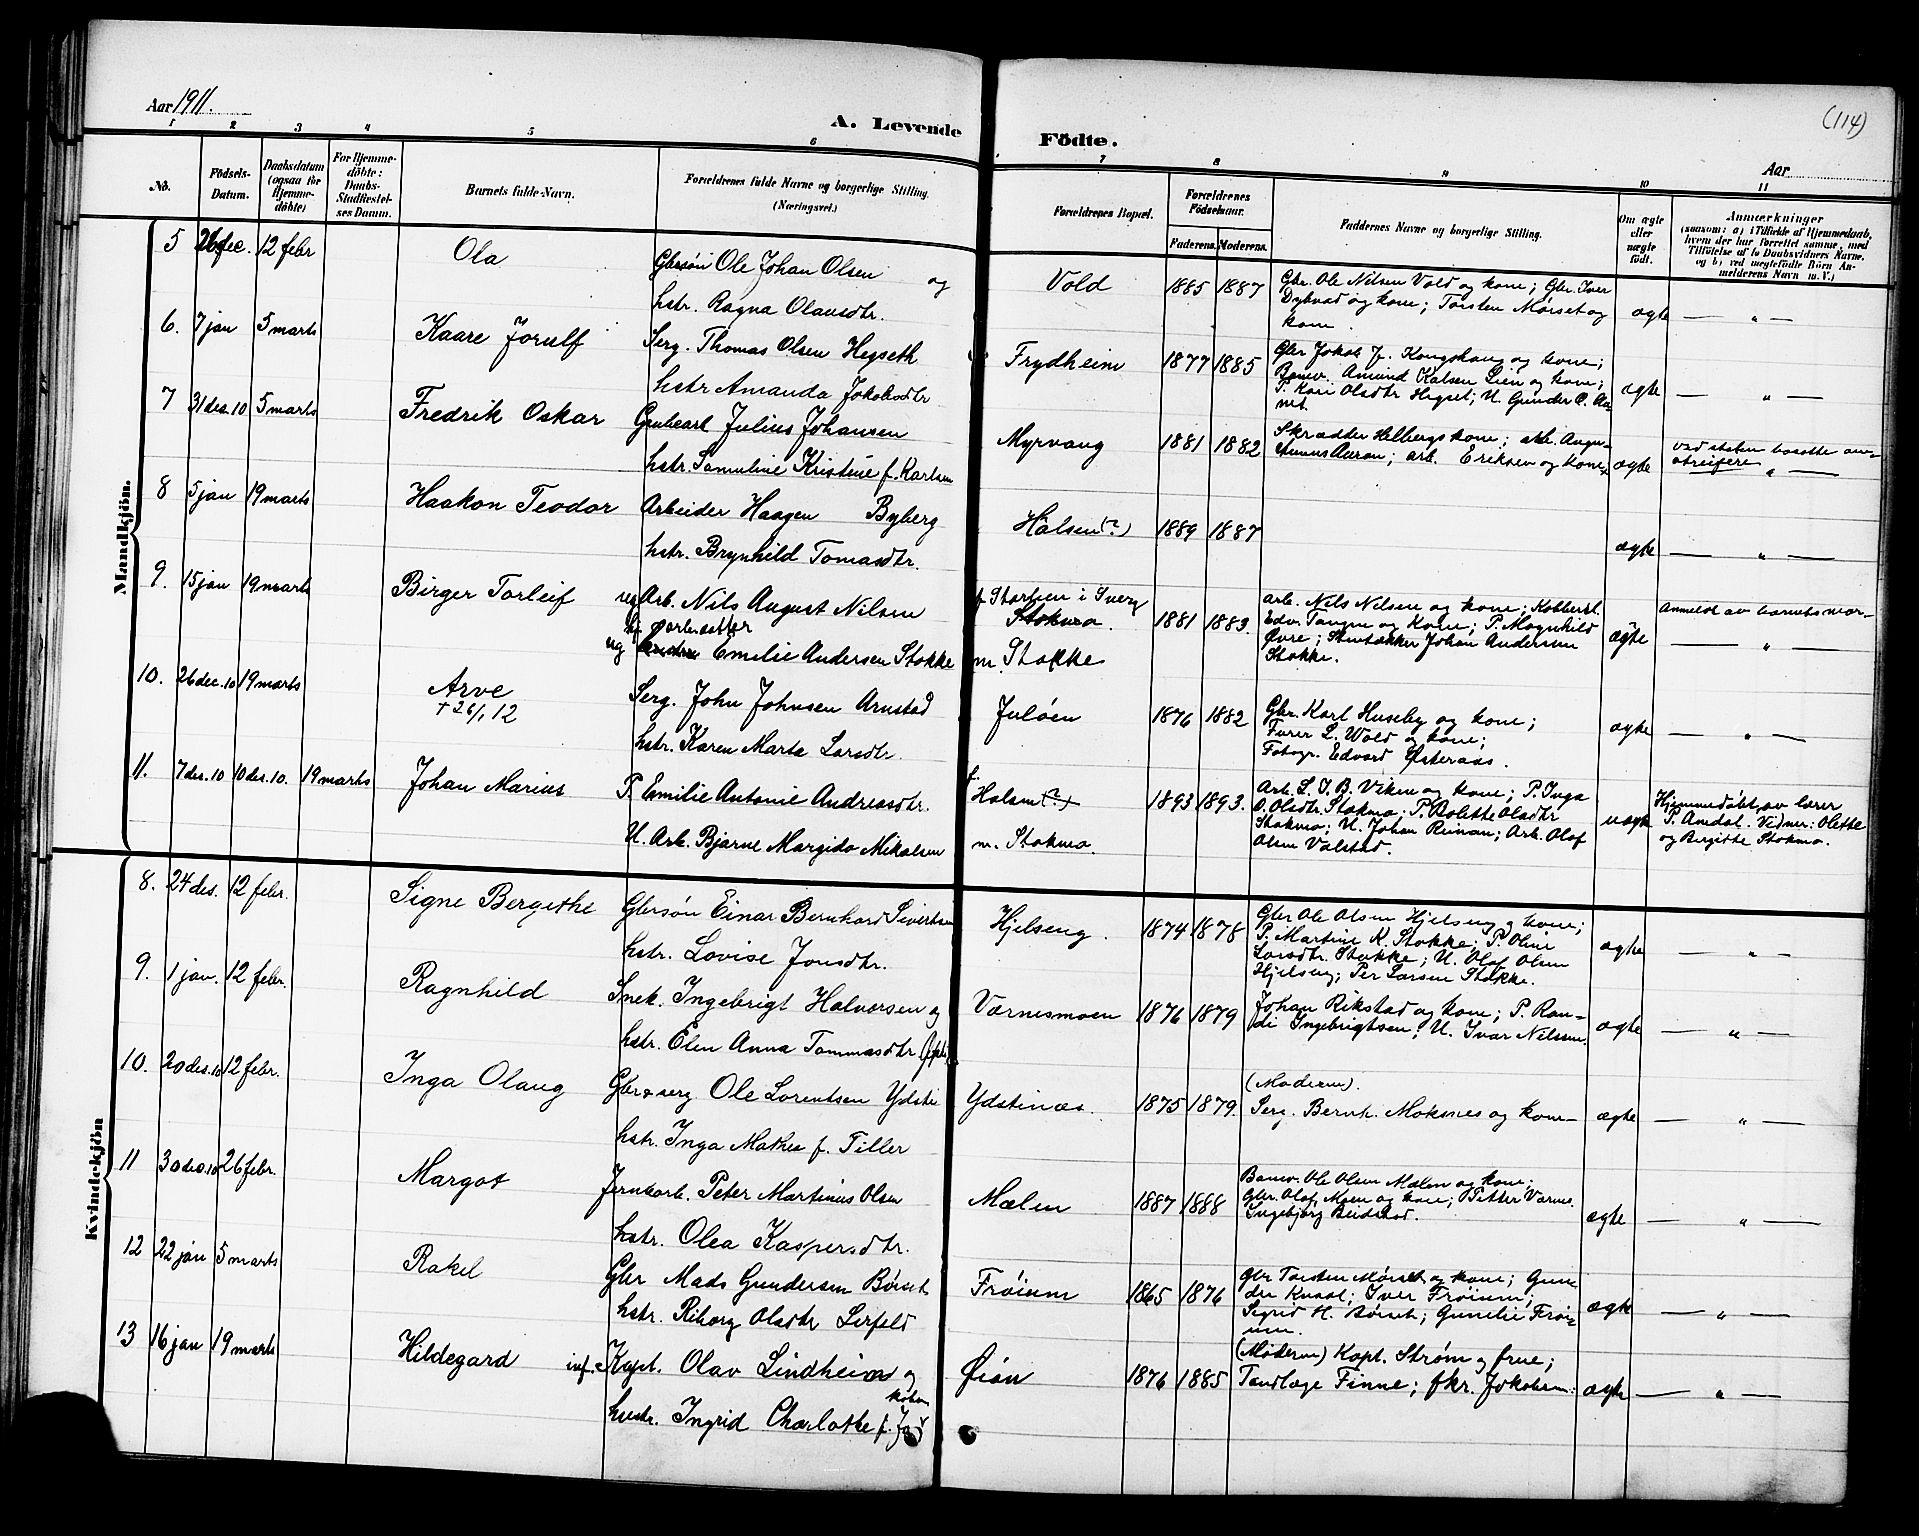 Aar 1911.
A. Levende Födte.
(114)
Aar
1 2 3 4 5 6 7 8 9 10 11
No.
Födsels-Datum.
Daabsdatum (ogsaa for Hjemme-döbte)
For Hjemme-döbte: Daabs-Stadfæstel-ses Datum.
Barnets fulde Navn.
Forældrenes fulde Navne og borgerlige Stilling. (Næringsvei.)
Forældrenes Bopæl.
Forældrenes Födselsaar.
Faderens. Moderens.
Faddernes Navne og borgerlige Stilling.
Om ægte eller uægte födt.
Anmærkninger (saasom: a) i Tilfælde af Hjemmedaab, hvem der har forrettet samme, med Tilföielse af to Daabsvidners Navne, og b) ved uægtefödte Börn Anmelderens Navn m. V.)
Mandkjön.
5 26 dec. 12 febr Ola Gbrsön Ole Johan Olsen og Vold 1885 1887 Gbr. Ole Nilsen Vold og kone; Gbr. Iver
hstr. Ragna Olausdtr. Dybvad og kone; Torsten Mørset og
kone. ægte — " —
6. 7 jan 5 marts Kaare Jorulf Serg. Thomas Olsen Hegseth Frydheim 1877 1885 Gbr Jakob J. Kongshaug og kone;
hstr Amanda Jakobsdtr Banev. Amund Kalsen Lien og kone;
P. Kari Olsdtr Hegset; U. Gunder O. ægte — " —
7 31 des. 10 5 marts Fredrik Oskar Grubearb Julius Johansen Myrvang 1881 1882 Skrædder Helbergs kone; arb. Augu-
hstr. Samuline Kristine f. Karlsen arb. Eriksen og kone ægte — " —
8 5 jan 19 marts Haakon Teodor Arbeider Haagen Byberg Halsen (?) 1889 1887
hstr. Brynhild Tomasdtr. ægte — " —
9. 15 jan 19 marts Birger Torleif ug Arb. Nils August Nilsen 1881 1883. arb. Nils Nilsen og kone; Kobberst.
Stokmo. Edv. Tangen og kone; P. Magnhild
ug Emilie Andersen Stokke m. Stokke Øvre; Johan Andersen
Stokke. ægte Anmeldt av barnets mor — " —
10. 26 dec. 10 19 marts Arve Serg. John Johnsen Arnstad Juløen 1876 1882 Gbr. Karl Huseby og kone;
+ 26/1 12 hstr. Karen Marta Larsdtr. Furer L. Wold og kone;
Fotogr. Edvard Østeraas. ægte — " —
11. 7 des. 10 10 des. 10. 19 marts Johan Marius P. Emilie Antonie Andreasdtr. f. Halsen (?) 1893 1893. Arb. L. J. B. Viken og kone; P. Inga
O. Olsdtr. Stokmo; P. Bolette Olsdtr
U. Arb. Bjarne Margido Mikalsen m. Stokmo. Stokmo; U. Johan Renaa; Arb. Olof
Olsen Valstad. uægte Hjemmedøbt av lærer
P. Amdal. Vidner: Olette
og Bergitte Stokmo.
Kvindekjön
8. 24 des. 12 febr. Signe Bergethe Gbrsön Einar Bernhard Sivertsen Hjelseng. 1874 1878 Gbr Ole Olsen Hjelseng og kone;
hstr. Lovise Jonsdtr. P. Martine K. Stokke; P. Oline
Larsdtr. Stokke; U. Olaf Olsen
Hjelseng; Per Larsen Stokke. ægte — " —
9. 1 jan. 12 febr. Ragnhild Snek. Ingebrigt Halvorsen og Værnesmoen 1876 1879 Johan Rikstad og kone; P. Ran-
hstr. Elen Anna Tommasdtr di Ingebrigtsen; U. Ivar Nilssen. ægte — " —
10. 20 des. 10 12 febr. Inga Olaug Gbr & serg Ole Lorentsen Ydsti Ydstinæs. 1875 1879. (Moderen).
hstr. Inga Mathea f. Tiller Serg. Bernh. Moksnes og kone ægte — " —
11 30 des. 10 26 febr. Margot Jernbarb. Peter Martinus Olsen Mælen 1887 1888 Banev. Ole Olsen Mælen og kone;
hstr. Olea Kaspersdtr. Gbr. Olaf Moen og kone; Petter Værne.
Ingebjørg Beidstad. ægte — " —
12 22 jan 5 marts Rakel Gbr Mads Gundersen Børset Frøium 1865 1876 Gbr Torsten Mørset og kone; Gun-
hstr. Riborg Olsdtr Lerfeld der Knaal; Iver Frøium;
Sigrid H. Børset; Gunelie Frøi-
um. ægte — " —
13 16 jan 19 marts Hildegard inf. Kapt. Olav Lindheim og Øiön 1876 1885 (Moderen) Kapt. Strøm og frue;
hustr. Ingrid Charlotte f. Tandlæge Finne; frk. Jakobsen. ægte — " —